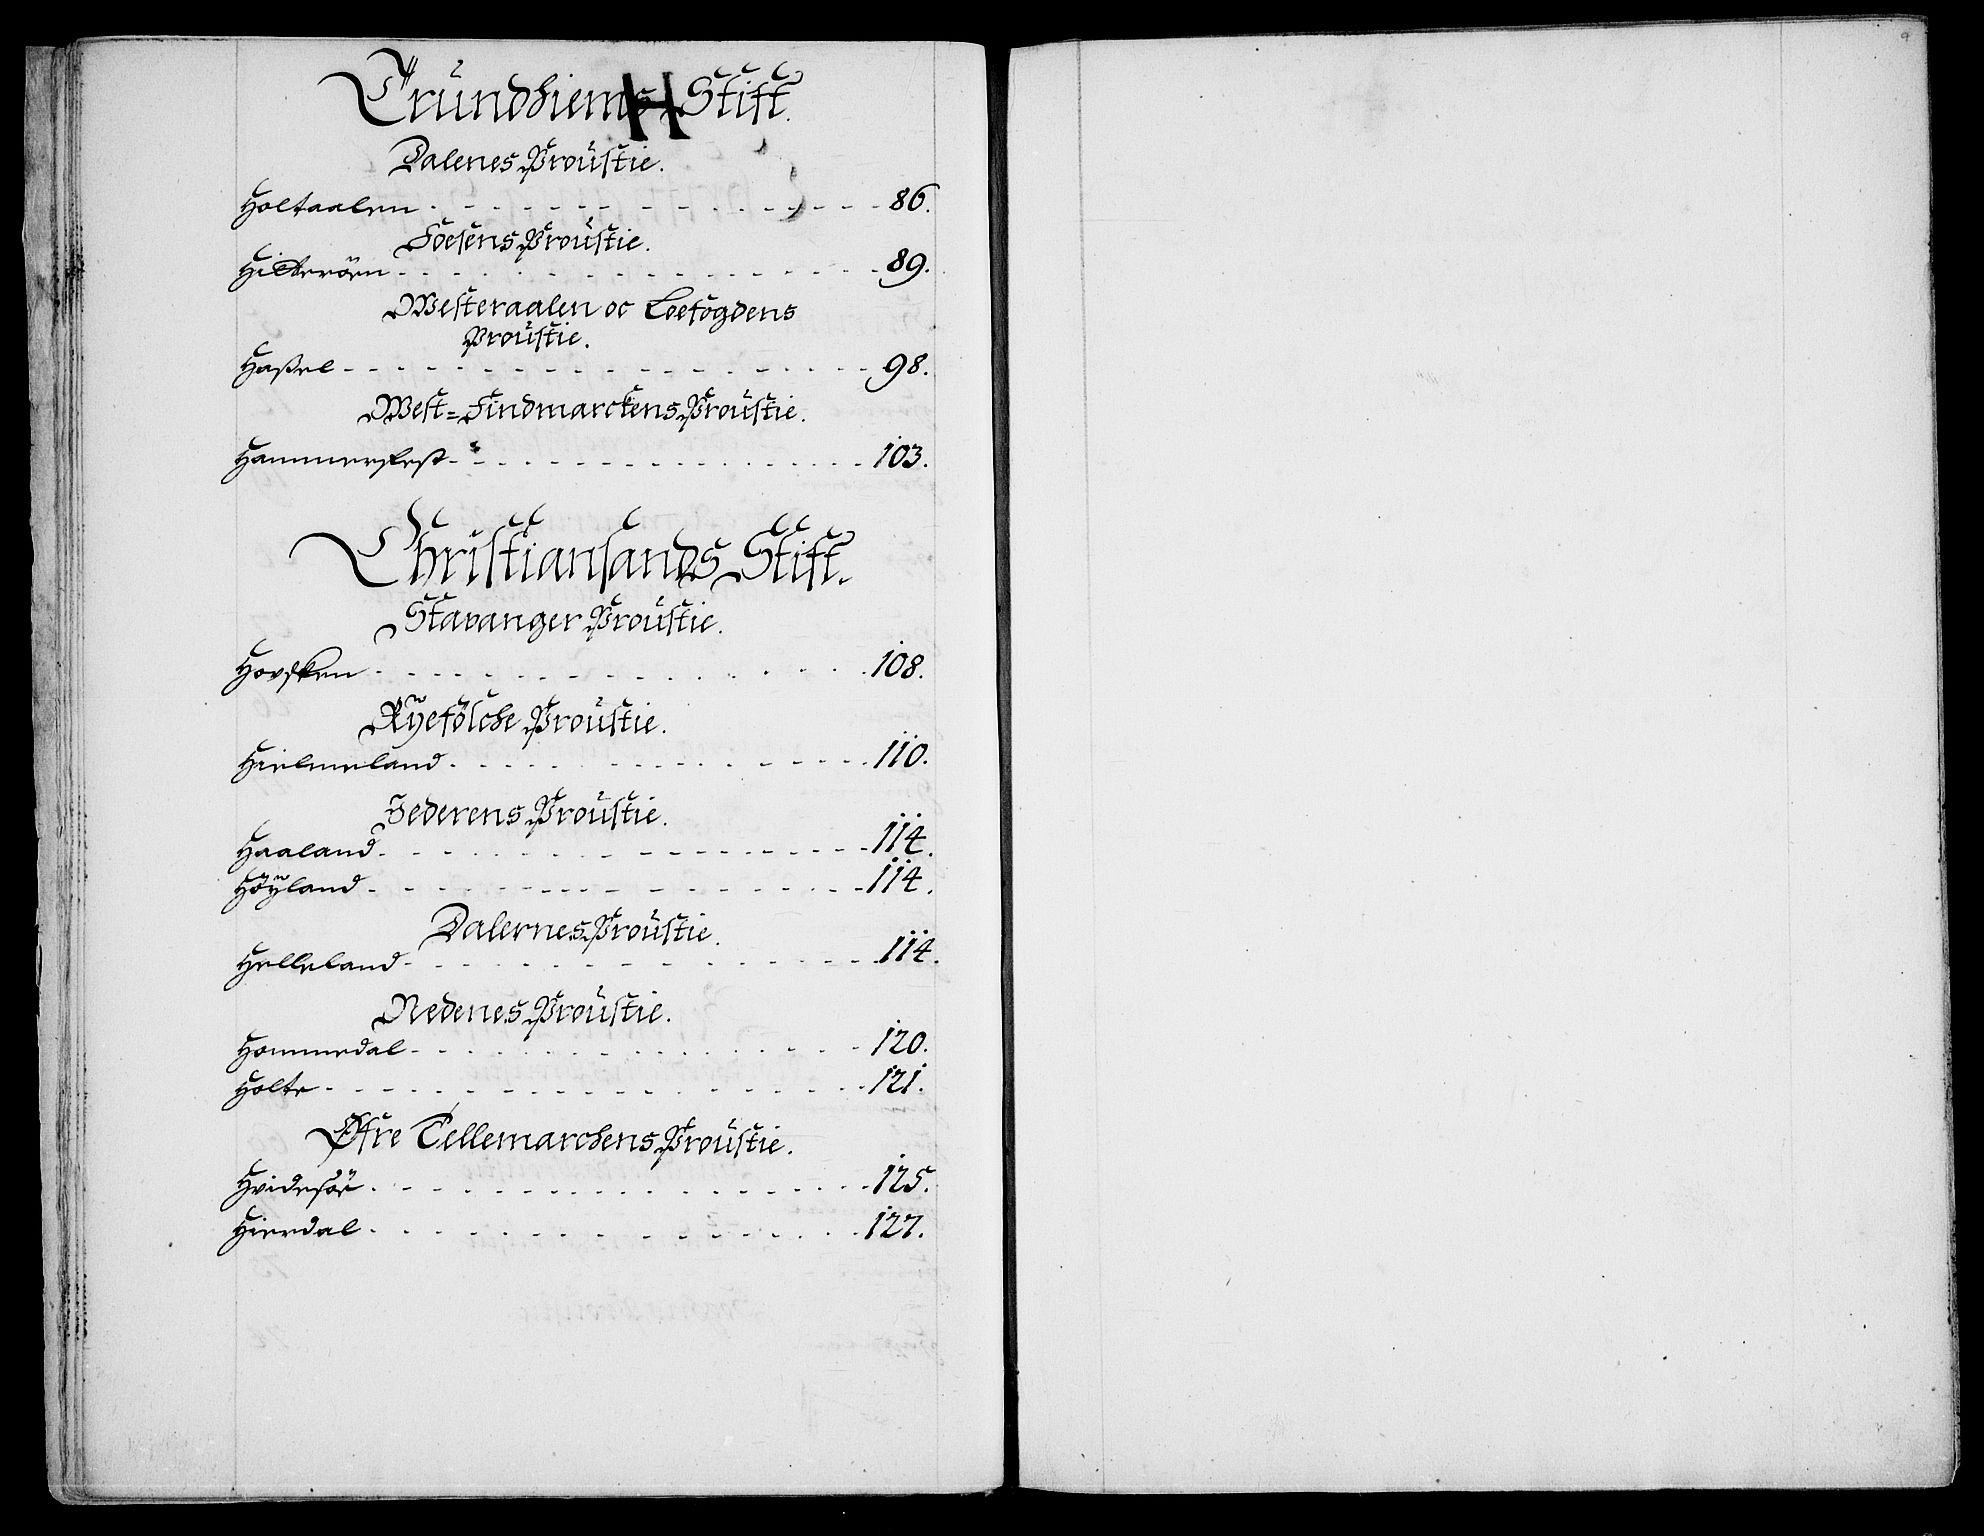 Trundhiems Stift.
H
Dalenes Proustie.
Holtaalen 86.
Foesens Proustie.
Hitteröen 89.
Westeraalen oc Loefogdens
Proustie.
Hassel 98.
West=Findmarckens Proustie.
Hammerfest 103.
Christiansands Stift.
Stavanger Proustie.
Hovsken 108.
Ryefölche Proustie.
Hielmeland 110.
Jederens Proustie.
Haaland 114.
Höyland 114.
Dalernes Proustie.
Helleland 114.
Nedenes Proustie.
Hommedal 120.
Holte 121.
Øfre Tellemarchens Proustie.
Hvidesöe 125.
Hierdal 127.